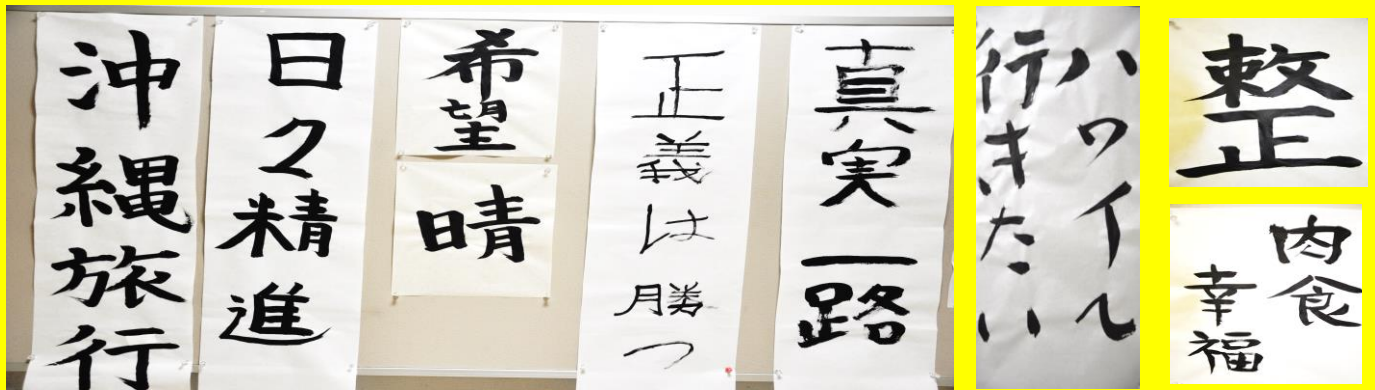 沖縄旅行
日々精進
希望
晴
正義は勝つ
真実一路
ハワイへ
行きたい
整
肉食
幸福